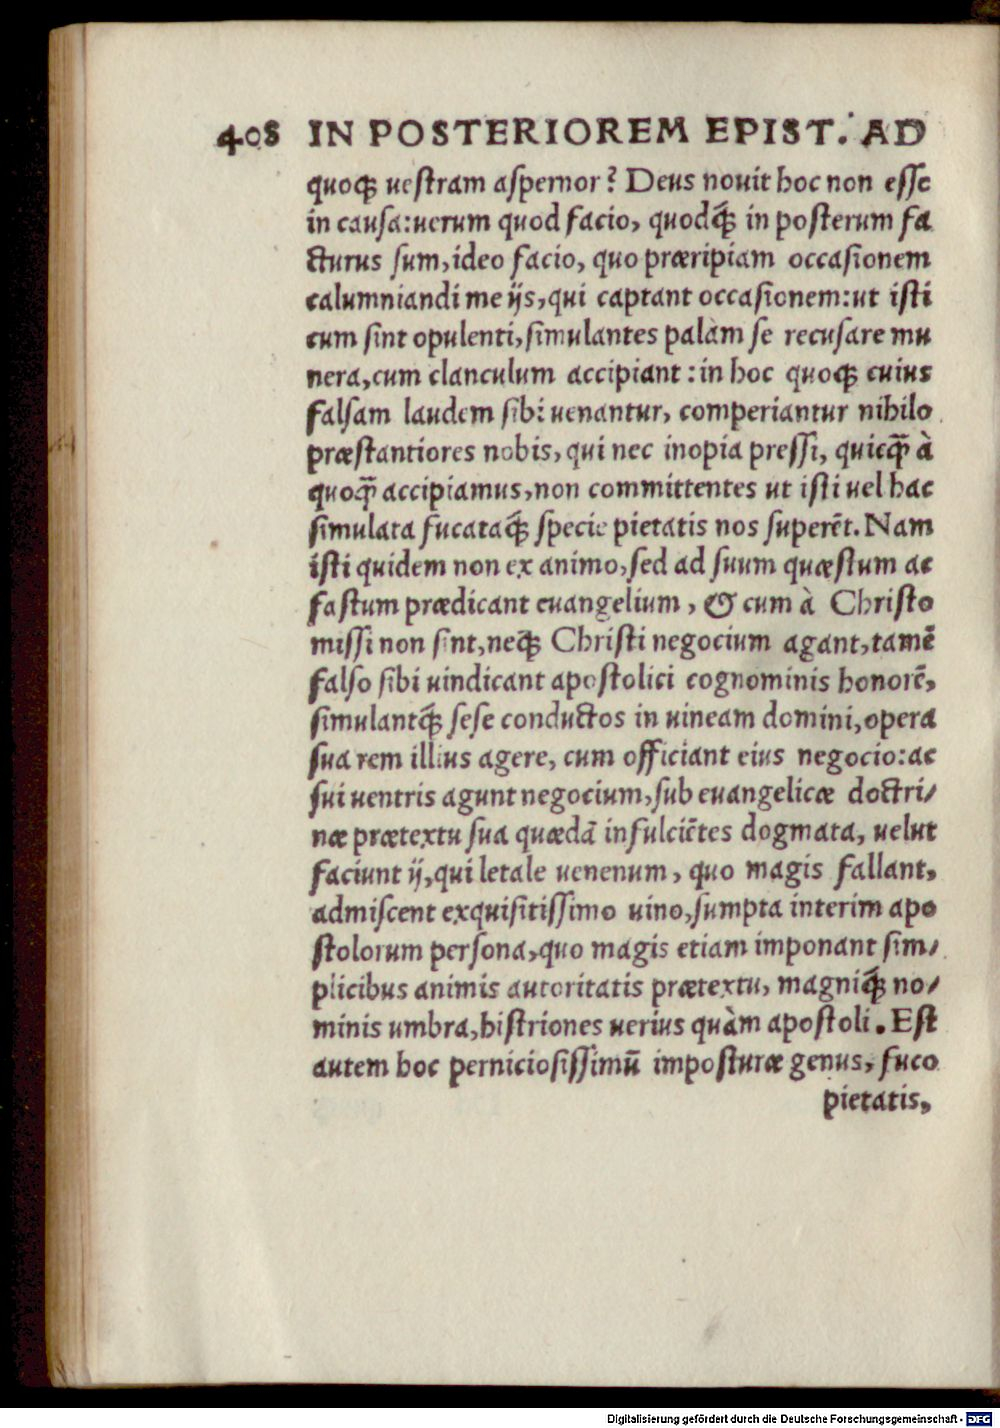 408 IN POSTERIOREM EPIST. AD
quoqꝫ uestram aspernor? Deus nouit hoc non esse
in causa: uerum quod facio, quodq́ꝫ in posterum fa
cturus sum, ideo facio, quo præripiam occasionem
calumniandi me ijs, qui captant occasionem: ut isti
cum sint opulenti, simulantes palàm se recusare mu
nera, cum clanculum accipiant: in hoc quoqꝫ cuius
falsam laudem sibi uenantur, comperiantur nihilo
præstantiores nobis, qui nec inopia pressi, quicq̃ à
quoq̃ accipiamus, non committentes ut isti uel hac
simulata fucataq́ꝫ specie pietatis nos superēt. Nam
isti quidem non ex animo, sed ad suum quæstum ac
fastum prædicant euangelium, & cum à Christo
missi non sint, neq́ꝫ Christi negocium agant, tamē
falso sibi uindicant apostolici cognominis honorē,
simulantq́ꝫ sese conductos in uineam domini, opera
sua rem illius agere, cum officiant eius negocio: ac
sui uentris agunt negocium, sub euangelicæ doctri/
næ prætextu sua quædā infulciētes dogmata, uelut
faciunt ij, qui letale uenenum, quo magis fallant,
admiscent exquisitissimo uino, sumpta interim apo
stolorum persona, quo magis etiam imponant sim/
plicibus animis autoritatis prætextu, magniq́ꝫ no/
minis umbra, histriones uerius quàm apostoli. Est
autem hoc perniciosissimū imposturæ genus, fuco
pietatis,
Digitalisierung gefördert durch die Deutsche Forschungsgemeinschaft - DFG